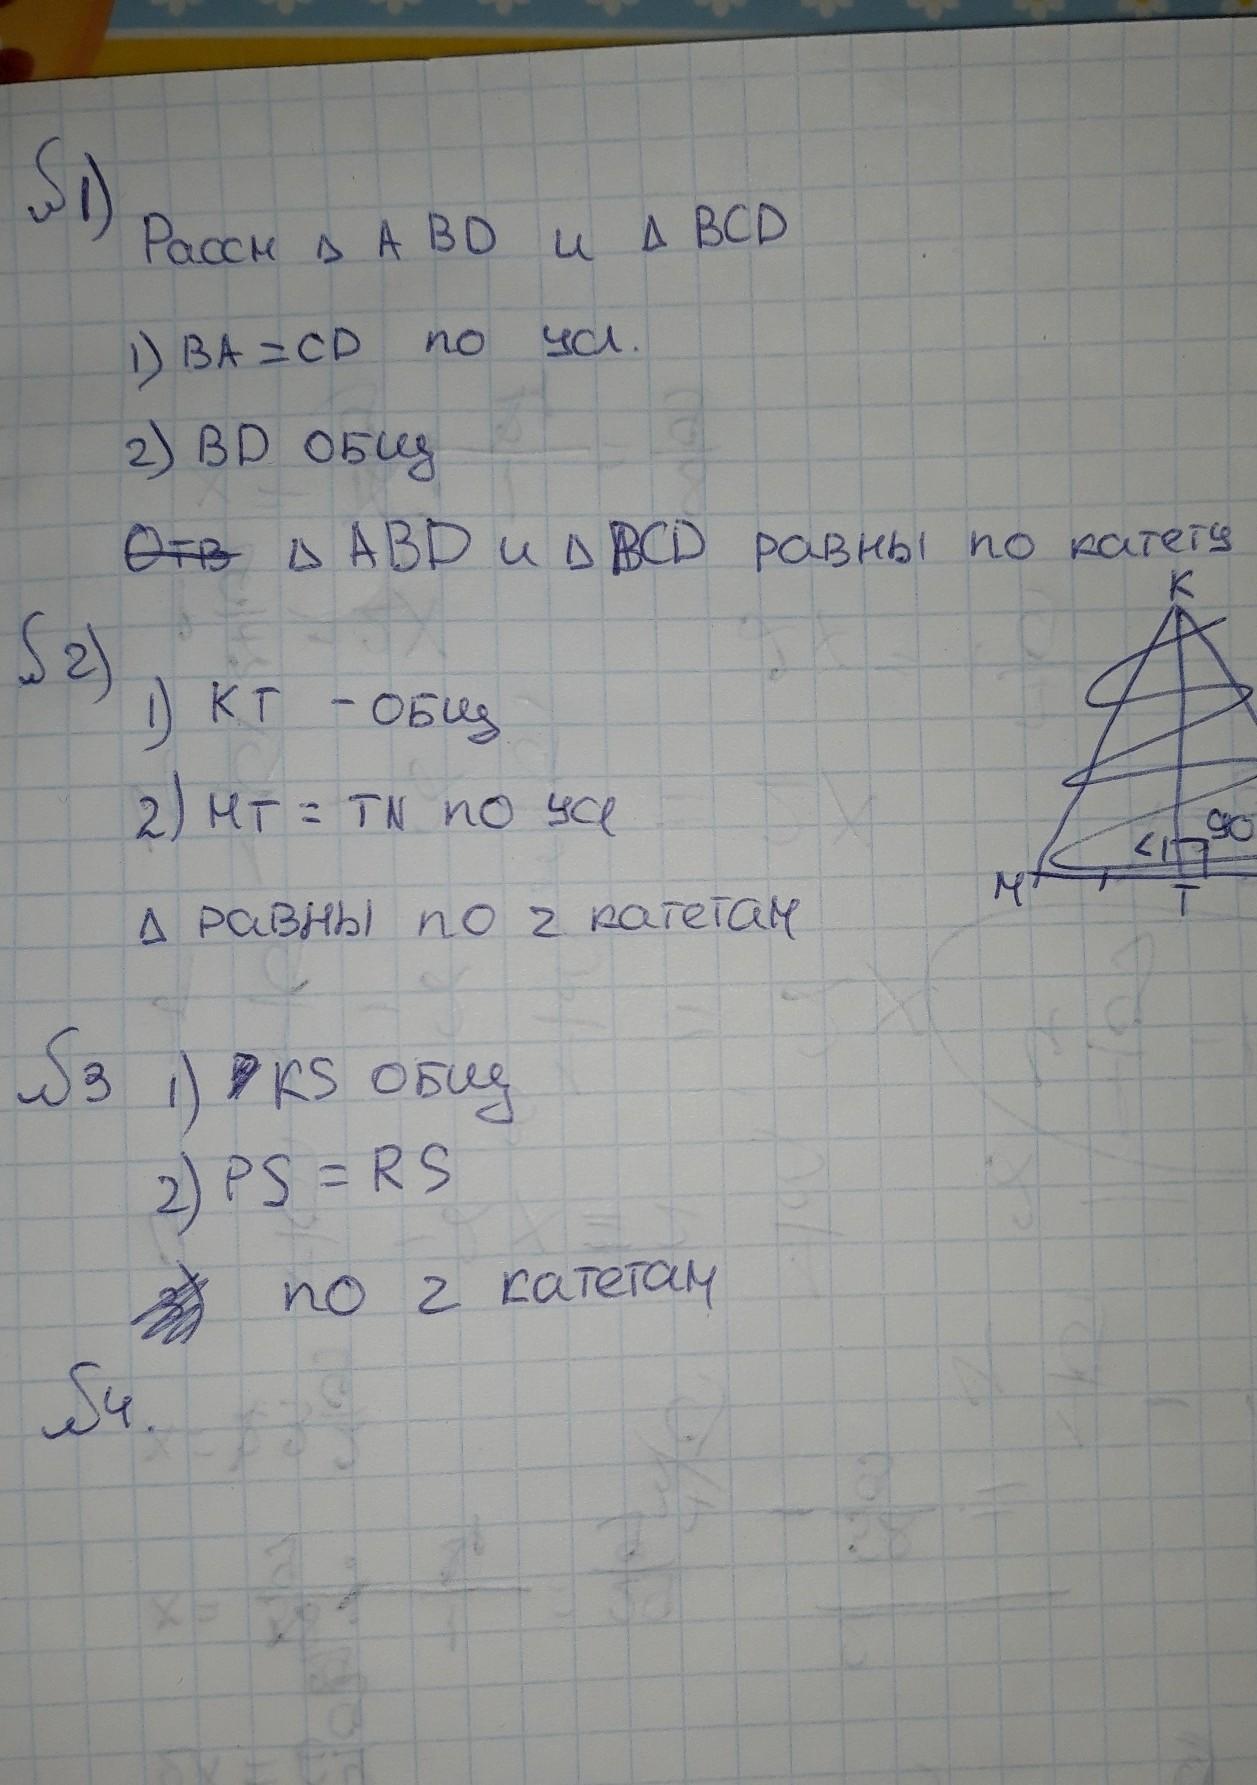 №1)
Рассм △ ABD и △ BCD
1) BA = CD по усл.
2) BD общ
Отв △ ABD и △ BCD равны по катету
K
№2)
1) KT - общ
2) MT = TN по усл
<1 90
M T
△ равны по 2 катетам
№3 1) KS общ
2) PS = RS
по 2 катетам
№4.